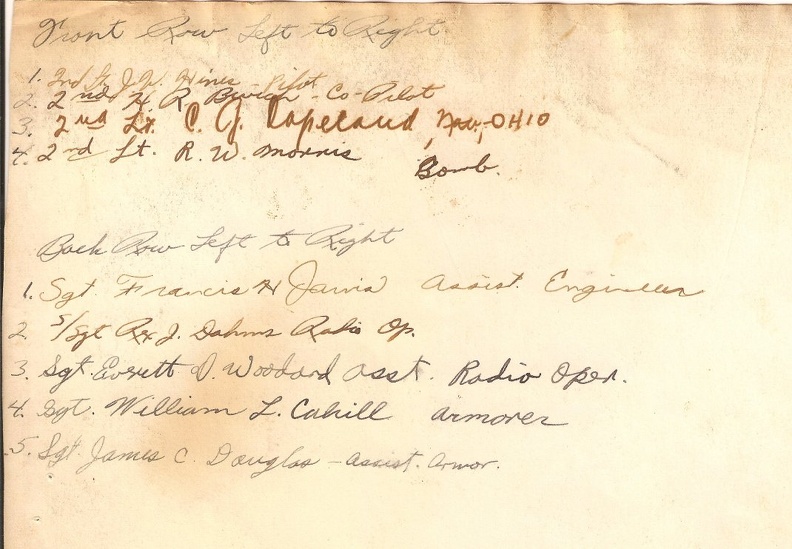 Front Row Left to Right
1. 2nd Lt. J.W. Hines - Pilot
2. 2nd H R - Co-Pilot
3. 2nd Lt. C. J. Copeland, Nav., OHIO
4. 2nd Lt. R. W. Morris Bomb.
Back Row Left to Right
1. Sgt. Francis H Jarvis Assist. Engineer
2 S/Sgt Rex J. Dahms Radio Op.
3. Sgt. Everett D. Woodard asst. Radio Oper.
4. Sgt. William L. Cahill armorer
5. Sgt. James C. Douglas - Assist. Armor.